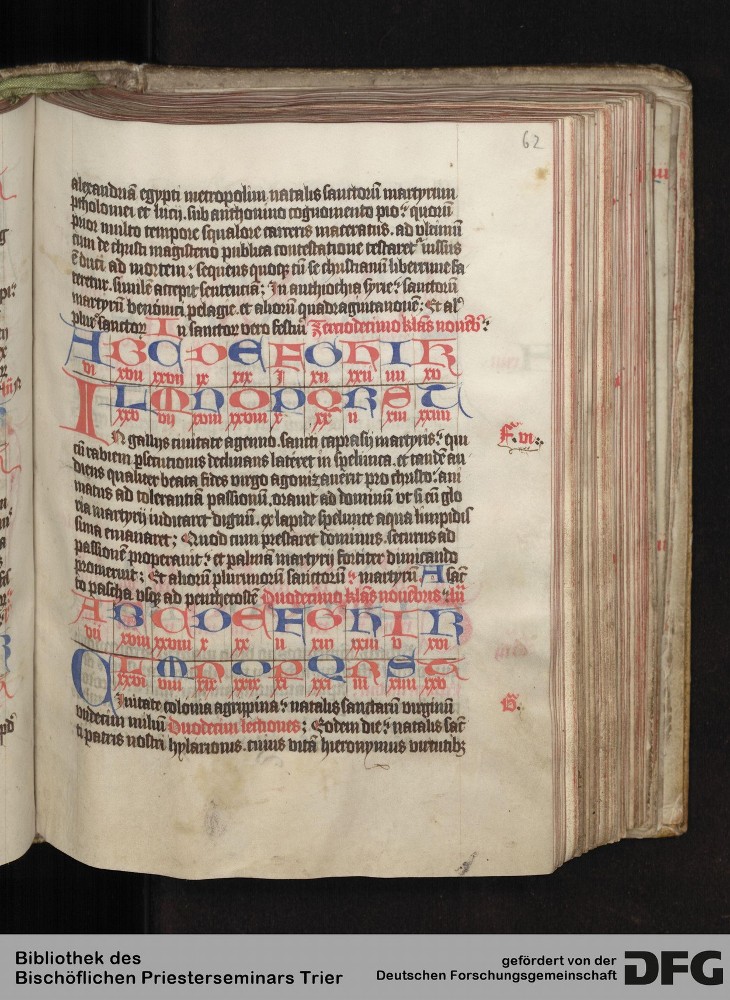 62
alexandriā egypti metropolim natalis sanctorū martyrum
ptholomei et lucij. sub anthonino cognomento pio: quorū
prior multo tempore squalore carceris maceratus. ad vltimū
cum de christi magisterio publica contestatione testaret iussus
ē duci ad mortem: sequens quoqꝫ cū se christianū liberrime fa
teretur. similē accepit sententiā: In anthiochia syrie: sanctorū
martyrū beronici pelagie. et aliorū quadragintanouē: Et al
plur sanctor In sanctor vero festiū Terciodecimo klās nouēb:
A B C D E F G H I K
vi xvii xxvii ix xix i xii xxii iiii xv
L M N O P Q R S T
xxv vii xviii xxviii x xx ii xiii xxiiii
IN gallijs ciuitate agenno. sancti caprasij martyris: qui
F. vi:
cū rabiem psecutionis declinans lateret in spelunca. et tandē au
diens qualiter beata fides virgo agonizauerit pro christo: ani
matus ad tolerantiā passionū. orauit ad dominū vt si eū glo
ria martyrij iudicaret dignū. ex lapide spelunce aqua limpidis
sima emanaret; Quod cum prestaret dominus. securus ad
passionē properauit: et palmā martyrij fortiter dimicando
promeruit; Et aliorū plurimorū sanctorū: martyrū A sāc
to pascha vsqꝫ ad penthecostē Duodecimo klās nouēbris: lū
A B C D E F G H I K
vii xviii xxviii x xx ii xiii xxiii v xvi
L M N O P Q R S T
xxvi viii xix xxix xi xxi iii xiiii xxv
CIuitate colonia agrippina: natalis sanctarū virginū
vndecim miliū Duodecim lectiones; Eodem die: natalis sāc
ti patris nostri hylarionis. cuius vitā hieronymus virtutibꝫ
Bibliothek des
Bischöflichen Priesterseminars Trier
gefördert von der
Deutschen Forschungsgemeinschaft
DFG